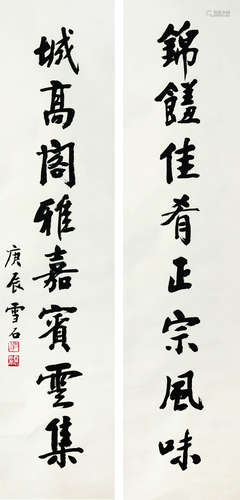 錦饈佳肴正宗風味
城高閣雅嘉賓雲集
庚辰雪石